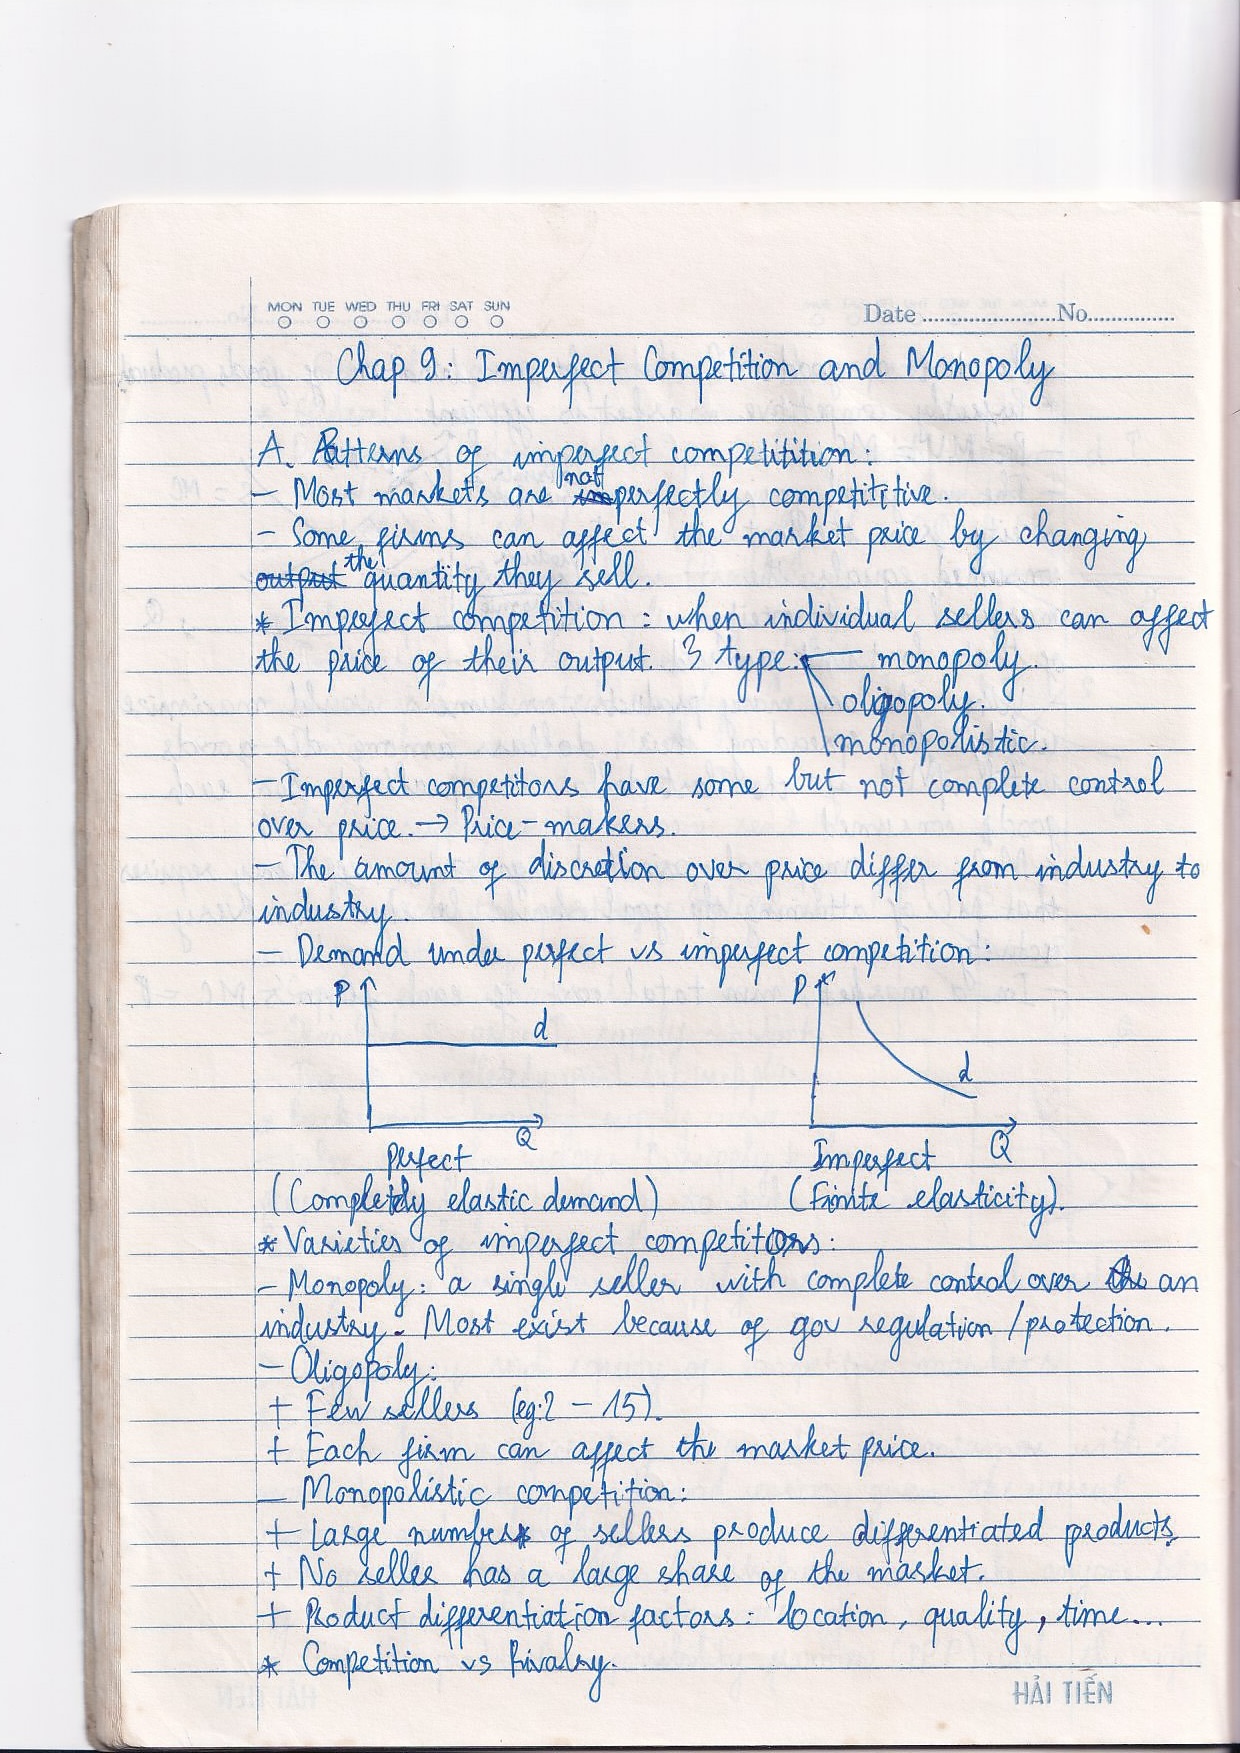 MON TUE WED THU FRI SAT SUN
Date ........................No...............
Chap 9: Imperfect Competition and Monopoly
A. Patterns of imperfect competitition:
- Most markets are not perfectly competititive.
- Some firms can affect the market price by changing
output the quantity they sell.
* Imperfect competition: when individual sellers can affect
the price of their output. 3 type: monopoly.
oligopoly.
monopolistic.
- Imperfect competitors have some but not complete control
over price. → Price-makers.
- The amount of discretion over price differ from industry to
industry.
- Demand under perfect vs imperfect competition:
P d Q P d Q
Perfect Imperfect
(Completely elastic demand) (Finite elasticity).
* Varieties of imperfect competitors:
- Monopoly: a single seller with complete control over an
industry. Most exist because of gov regulation/protection.
- Oligopoly:
+ Few sellers (eg: 2 - 15).
+ Each firm can affect the market price.
- Monopolistic competition:
+ Large number of sellers produce differentiated products.
+ No seller has a large share of the market.
+ Product differentiation factors: location, quality, time...
* Competition vs Rivalry.
HẢI TIẾN